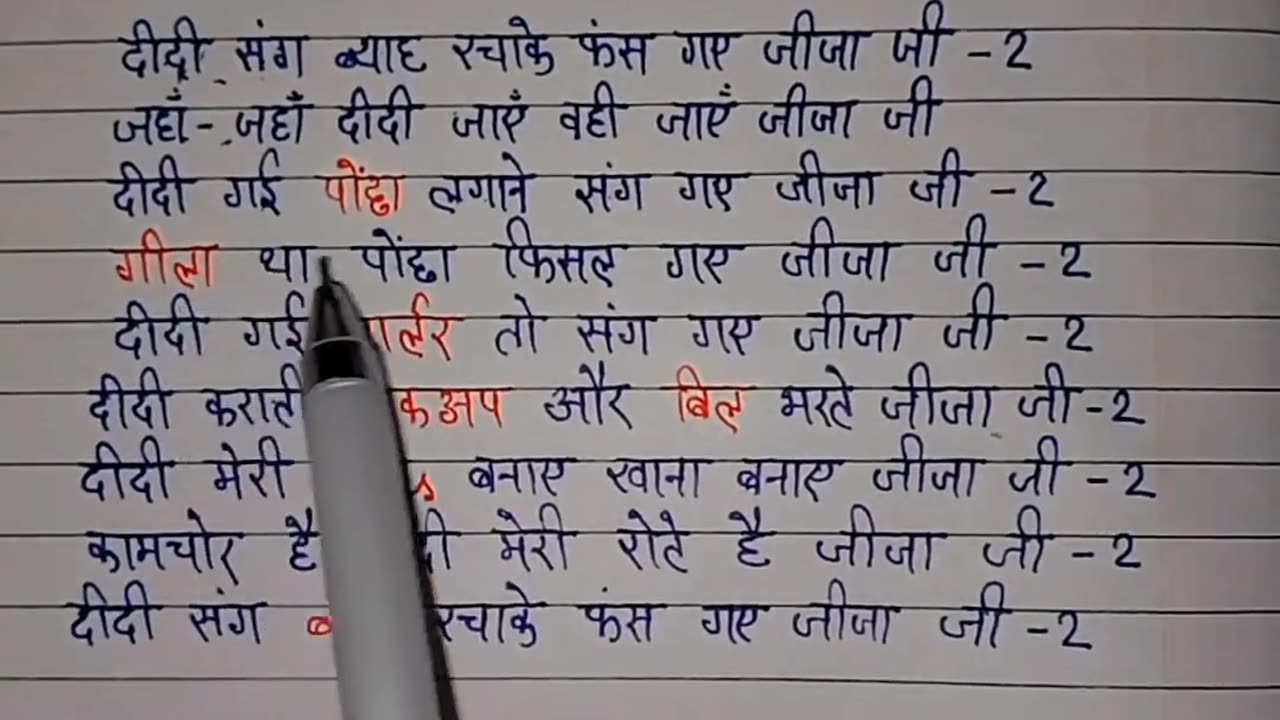 दीदी संग ब्याह रचाके फंस गए जीजा जी -2
जहाँ-जहाँ दीदी जाएँ वही जाएँ जीजा जी
दीदी गई पोंछा लगाने संग गए जीजा जी -2
गीला था पोंछा फिसल गए जीजा जी -2
दीदी गई र्लर तो संग गए जीजा जी -2
दीदी कराती कअप और बिल भरते जीजा जी -2
दीदी मेरी बनाए खाना बनाए जीजा जी -2
कामचोर है दी मेरी रोते है जीजा जी -2
दीदी संग रचाके फंस गए जीजा जी -2